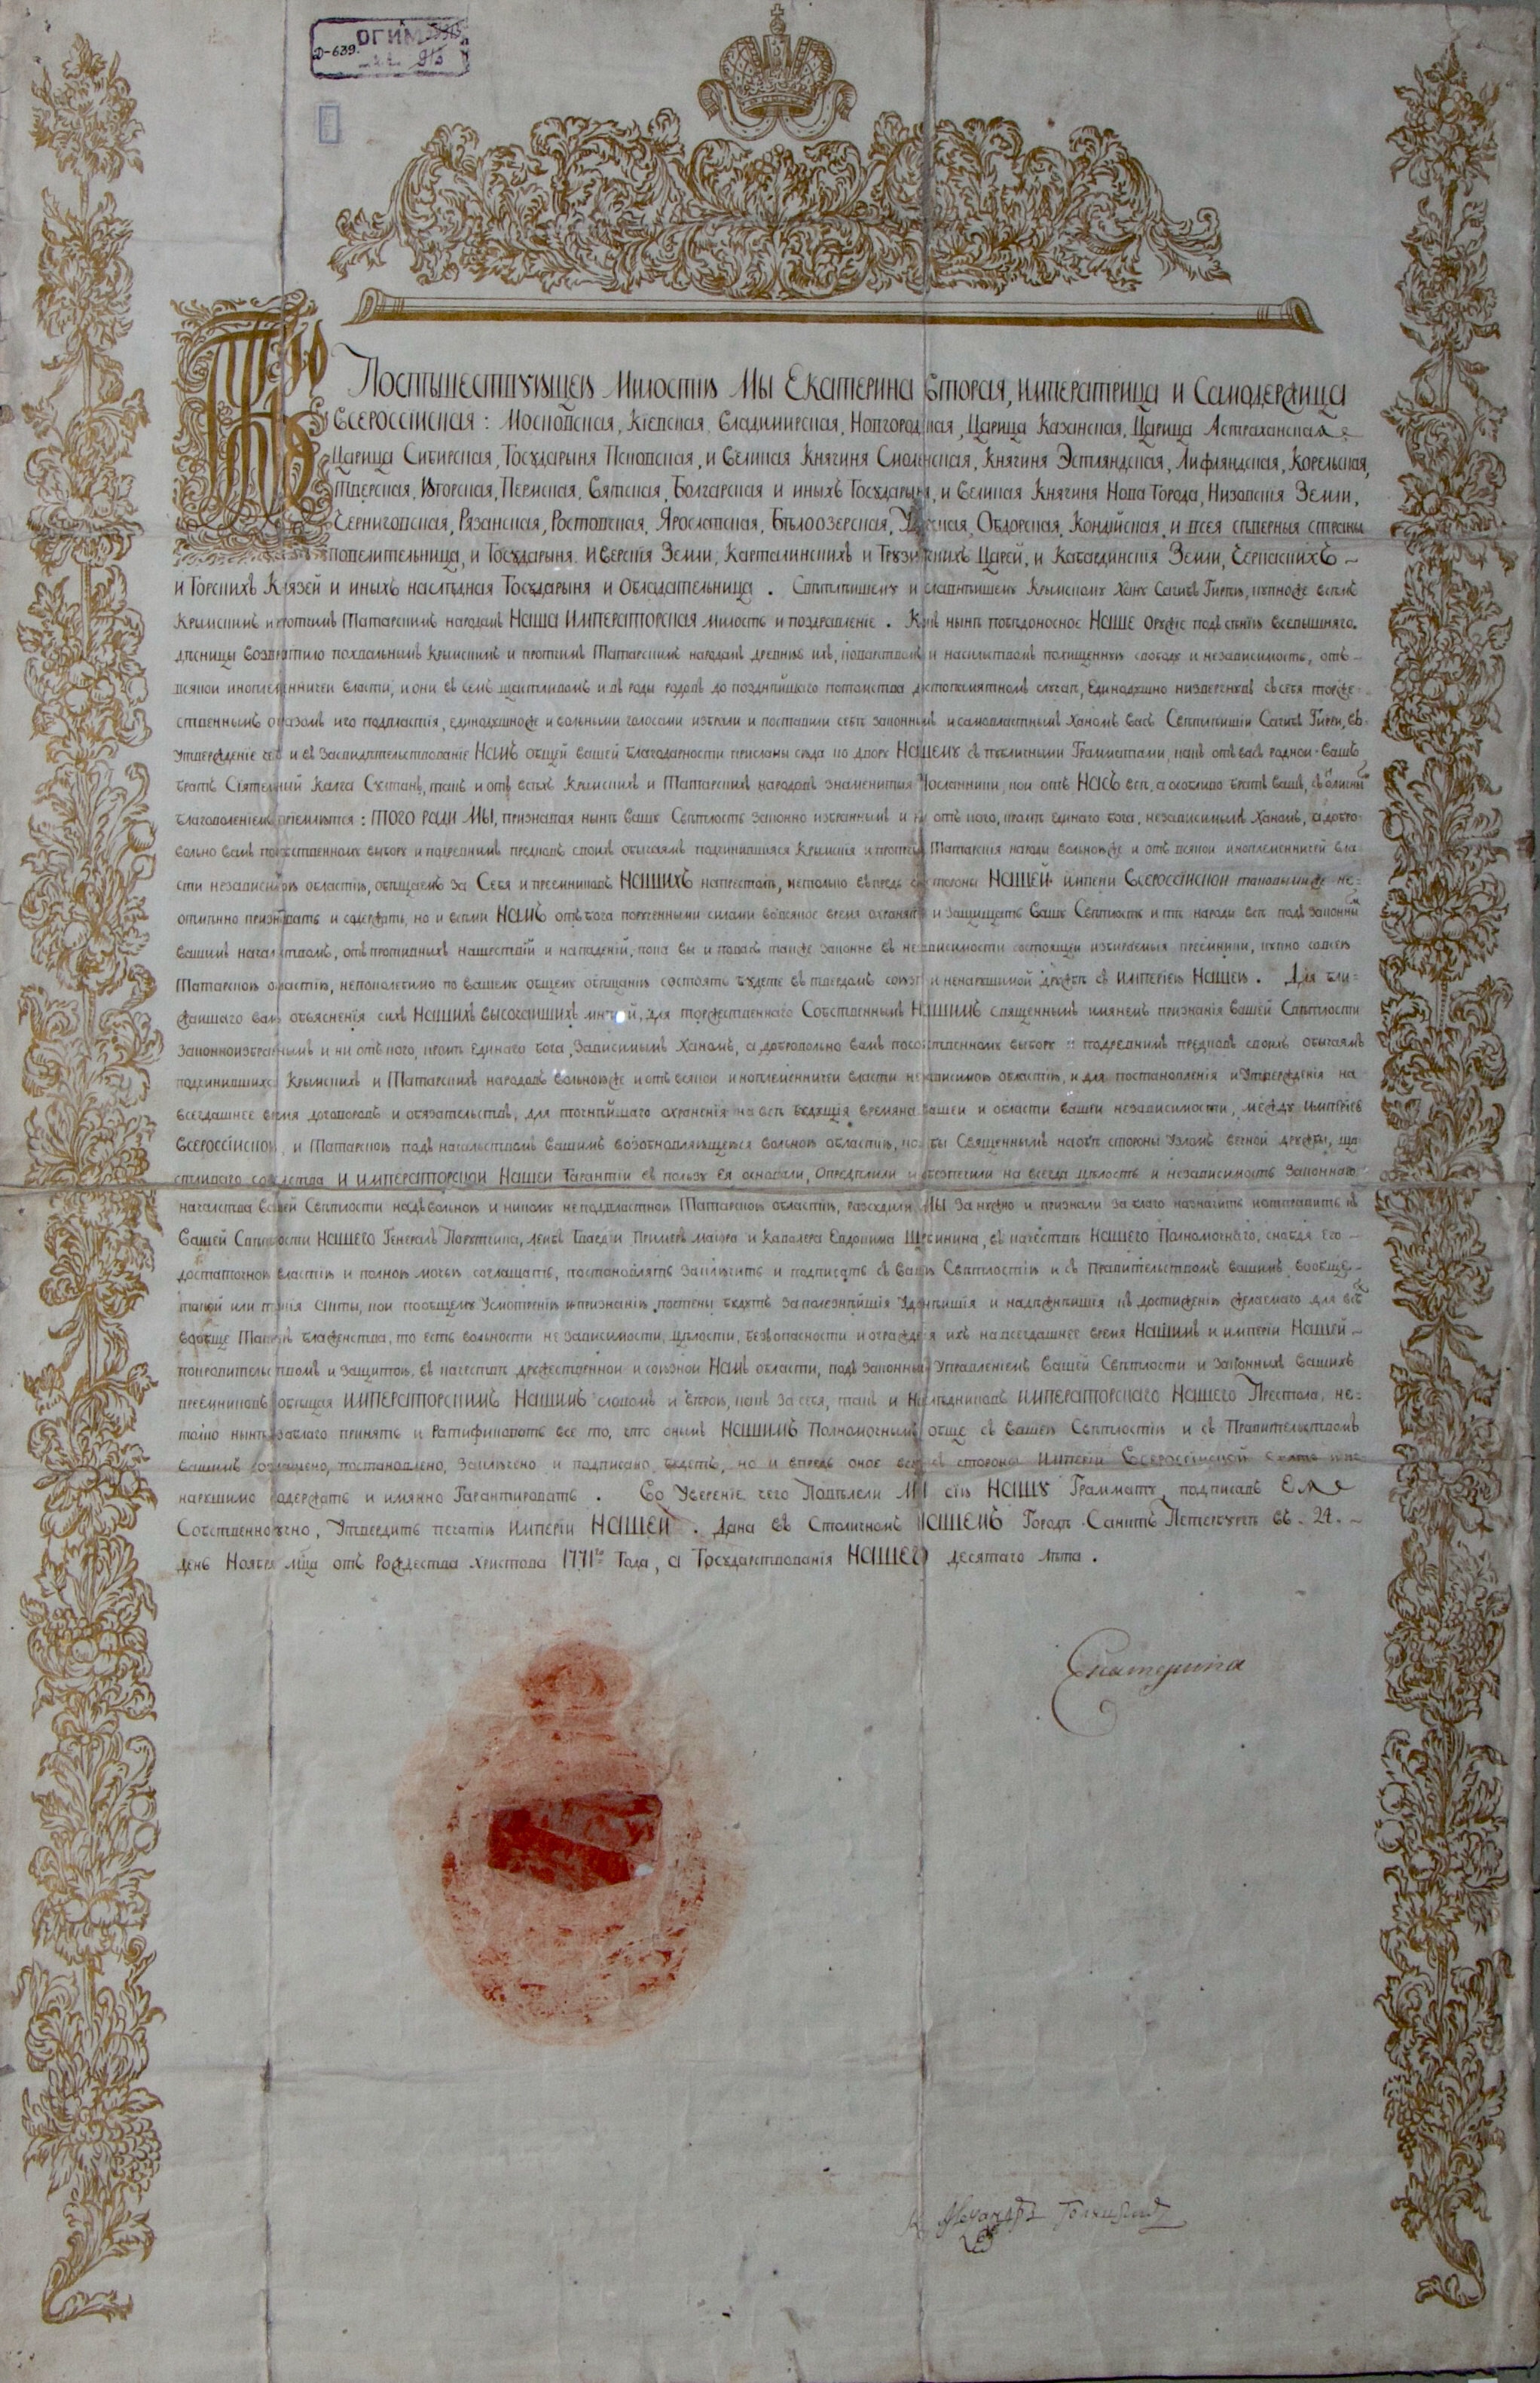 ОГИМ
Д-639.
Божіею
Поспѣшествующею Милостію Мы Екатерина Вторая, Императрица и Самодержица
Всероссійская: Московская, Кіевская, Владимирская, Новгородская, Царица Казанская, Царица Астраханская,
Царица Сибирская, Государыня Псковская, и Великая Княгиня Смоленская, Княгиня Эстляндская, Лифляндская, Корельская,
Тверская, Югорская, Пермская, Вятская, Болгарская и иныхъ Государыня, и Великая Княгиня Нова Города, Низовскія Земли,
Черниговская, Рязанская, Ростовская, Ярославская, Бѣлоозерская, Удорская, Обдорская, Кондійская, и всея сѣверныя страны
повелительница, и Государыня Иверскія Земли, Карталинскихъ и Грузинскихъ Царей, и Кабардинскія Земли, Черкаскихъ
и Горскихъ Князей и иныхъ наслѣдная Государыня и Обладательница. Свѣтлѣйшему и славнѣйшему Крымскому Хану Сагибъ Гирею, купножъ всѣмъ
Крымскимъ и протчимъ Татарскимъ народамъ Наша Императорская милость и поздравленіе. Какъ нынѣ побѣдоносное Наше оружіе подъ сѣнію всевышняго
десницы возвратило похвальнымъ Крымскимъ и протчимъ Татарскимъ народамъ древнюю ихъ, коварствомъ и насильствомъ похищенную свободу и независимость, отъ
всякой иноплеменничей власти, и они въ семъ щастливомъ и въ роды родовъ до позднѣйшаго потомства достопамятномъ случаѣ, единодушно низвергнувъ съ себя торже-
ственнымъ образомъ иго подвластія, единодушножъ и вольными голосами избрали и поставили себѣ законнымъ и самовластнымъ Ханомъ васъ Свѣтлѣйшій Сагибъ Гирей, въ
Утвержденіе чего и въ Засвидѣтельствованіе Намъ общей вашей благодарности присланы сюда ко двору Нашему съ публичными Грамматами, какъ отъ васъ родной вашъ
братъ Сіятельный Калга Султанъ, такъ и отъ всѣхъ Крымскихъ и Татарскихъ народовъ знаменитыя Посланники, кои отъ Насъ всѣ, а особливо братъ вашъ, съ отличнымъ
благоволеніемъ пріемлются: того ради Мы, признавая нынѣ вашу Свѣтлость законно избраннымъ и ни отъ кого, кромѣ единаго бога, независимымъ Ханомъ, а добро-
вольно вамъ по собственному выбору и подревнимъ предковъ своихъ обычаямъ подчинившіяся Крымскія и протчія Татарскія народы вольноюжъ и отъ всякой иноплеменничей вла-
сти независимою областію, обѣщаемъ за Себя и преемниковъ Нашихъ на престолѣ, не только впредь со стороны Нашей имперіи Всероссійской таковымижъ не-
отмѣнно признавать и содержать, но и всѣми Намъ отъ бога порученными силами во всякое время охранять и защищать вашу Свѣтлость и тѣ народы всѣ подъ законнымъ
вашимъ начальствомъ, отъ противныхъ нашествій и нападеній, пока вы и по васъ также законно въ независимости состоящей избираемыя преемники, купно со всею
Татарскою областію, непоколебимо по вашему общему обѣщанію состоять будете въ твердомъ союзѣ и ненарушимой дружбѣ съ имперіею Нашею. Для бли-
жайшаго вамъ объясненія сихъ Нашихъ высочайшихъ мнѣній, для торжественнаго Собственнымъ Нашимъ священнымъ имянемъ признанія вашей Свѣтлости
законноизбраннымъ и ни отъ кого, кромѣ единаго бога, зависимымъ Ханомъ, а добровольно вамъ по собственному выбору и подревнимъ предковъ своихъ обычаямъ
подчинившихся Крымскихъ и Татарскихъ народовъ вольноюжъ и отъ всякой иноплеменничей власти независимою областію, и для постановленія и Утвержденія на
всегдашнее время договоровъ и обязательствъ, для точнѣйшаго охраненія на всѣ будущія времяна вашей и области вашей независимости, между имперіею
Всероссійскою, и Татарскою подъ начальствомъ вашимъ возобновляющеюся вольною областію, кои бы Священнымъ на обѣ стороны Узломъ вечной дружбы, ща-
стливаго сосѣдства и императорской Нашей Гарантіи въ пользу Ея основали, Опредѣлили и обезпечили на всегда цѣлость и независимость Законнаго
началства вашей Свѣтлости надъ вольною и никому неподвластною Татарскою областію, разсудили Мы за нужно и признали за благо назначить и отправить къ
вашей Свѣтлости Нашего Генералъ Порутчика, Лейбъ Гвардіи Премеръ Маіора и Кавалера Евдокима Щербинина, въ качествѣ Нашего Полномочнаго, снабдя его
достаточною властію и полною мочью соглашать, постановлять заключить и подписать съ вашею Свѣтлостію и съ Правительствомъ вашимъ вообще
такой или такія Акты, кои пообщему Усмотренію и признанію почтены будутъ за полезнѣйшія Удобнѣйшія и надежнѣйшія къ достиженію желаемаго для всѣхъ
вообще Татаръ блаженства, то есть вольности независимости, цѣлости, безопасности и огражденія ихъ на всегдашнее время Нашимъ и имперіи Нашей
покровительствомъ и защитою, въ качествѣ дружественной и союзной Намъ области, подъ законнымъ Управленіемъ вашей Свѣтлости и законныхъ вашихъ
преемниковъ, обѣщая Императорскимъ Нашимъ словомъ и вѣрою, какъ за себя, такъ и Наслѣдниковъ Императорскаго Нашего Престола, не-
токмо нынѣ заблаго принять и Ратификовать все то, что онымъ Нашимъ Полномочнымъ обще съ вашею Свѣтлостію и съ Правительствомъ
вашимъ соглашено, постановлено, заключено и подписано будетъ, но и впредь оное все съ стороны Имперіи Всероссійской свято и не-
нарушимо содержать и имянно Гарантировать. Во Уверенiе чего Повѣлели Мы сію Нашу Граммату, подписавъ Ея
Собственноручно, Утвердить печатью Имперіи Нашей. Дана въ Столичномъ Нашемъ Городѣ Санктъ Петербургѣ въ 24.
день Ноября мца отъ Рождества Христова 1771го Года, а Государствованія Нашего десятаго лѣта.
Екатерина
К. Александръ Голицынъ